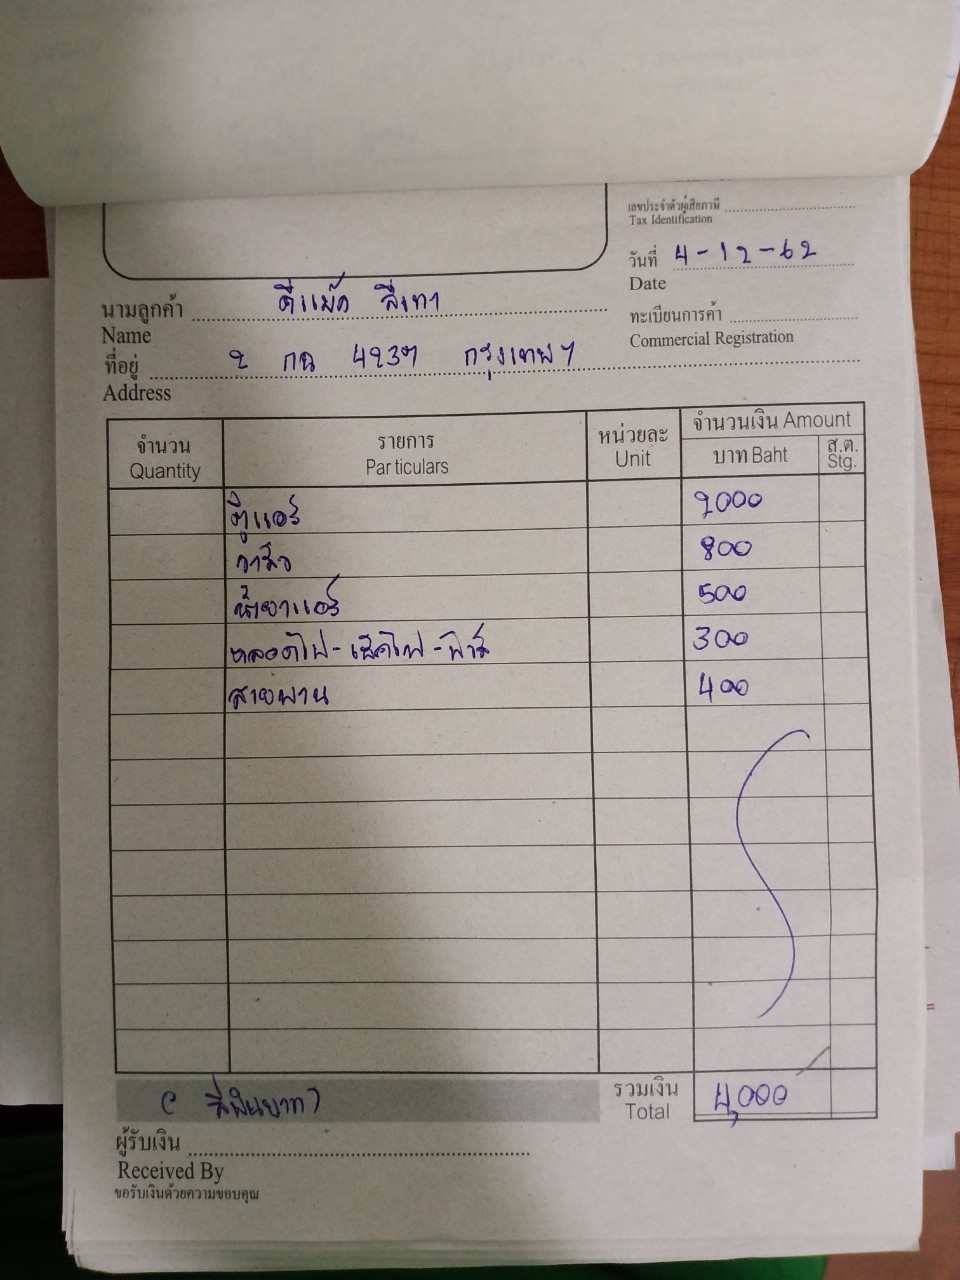 เลขประจำตัวผู้เสียภาษี
Tax Identification
วันที่ 4-12-62
Date
นามลูกค้า ดีแม็ก สีเทา
Name
ทะเบียนการค้า
Commercial Registration
ที่อยู่ 2 กฉ 4237 กรุงเทพฯ
Address
จำนวน รายการ หน่วยละ จำนวนเงิน Amount
Quantity Particulars Unit บาท Baht ส.ต. Stg.
ตู้แอร์ 2000
วาล์ว 800
น้ำยาแอร์ 500
หลอดไฟ-เช็คไฟ-ฟิวส์ 300
สายพาน 400
(สี่พันบาท) รวมเงิน 4,000
Total
ผู้รับเงิน
Received By
ขอรับเงินด้วยความขอบคุณ